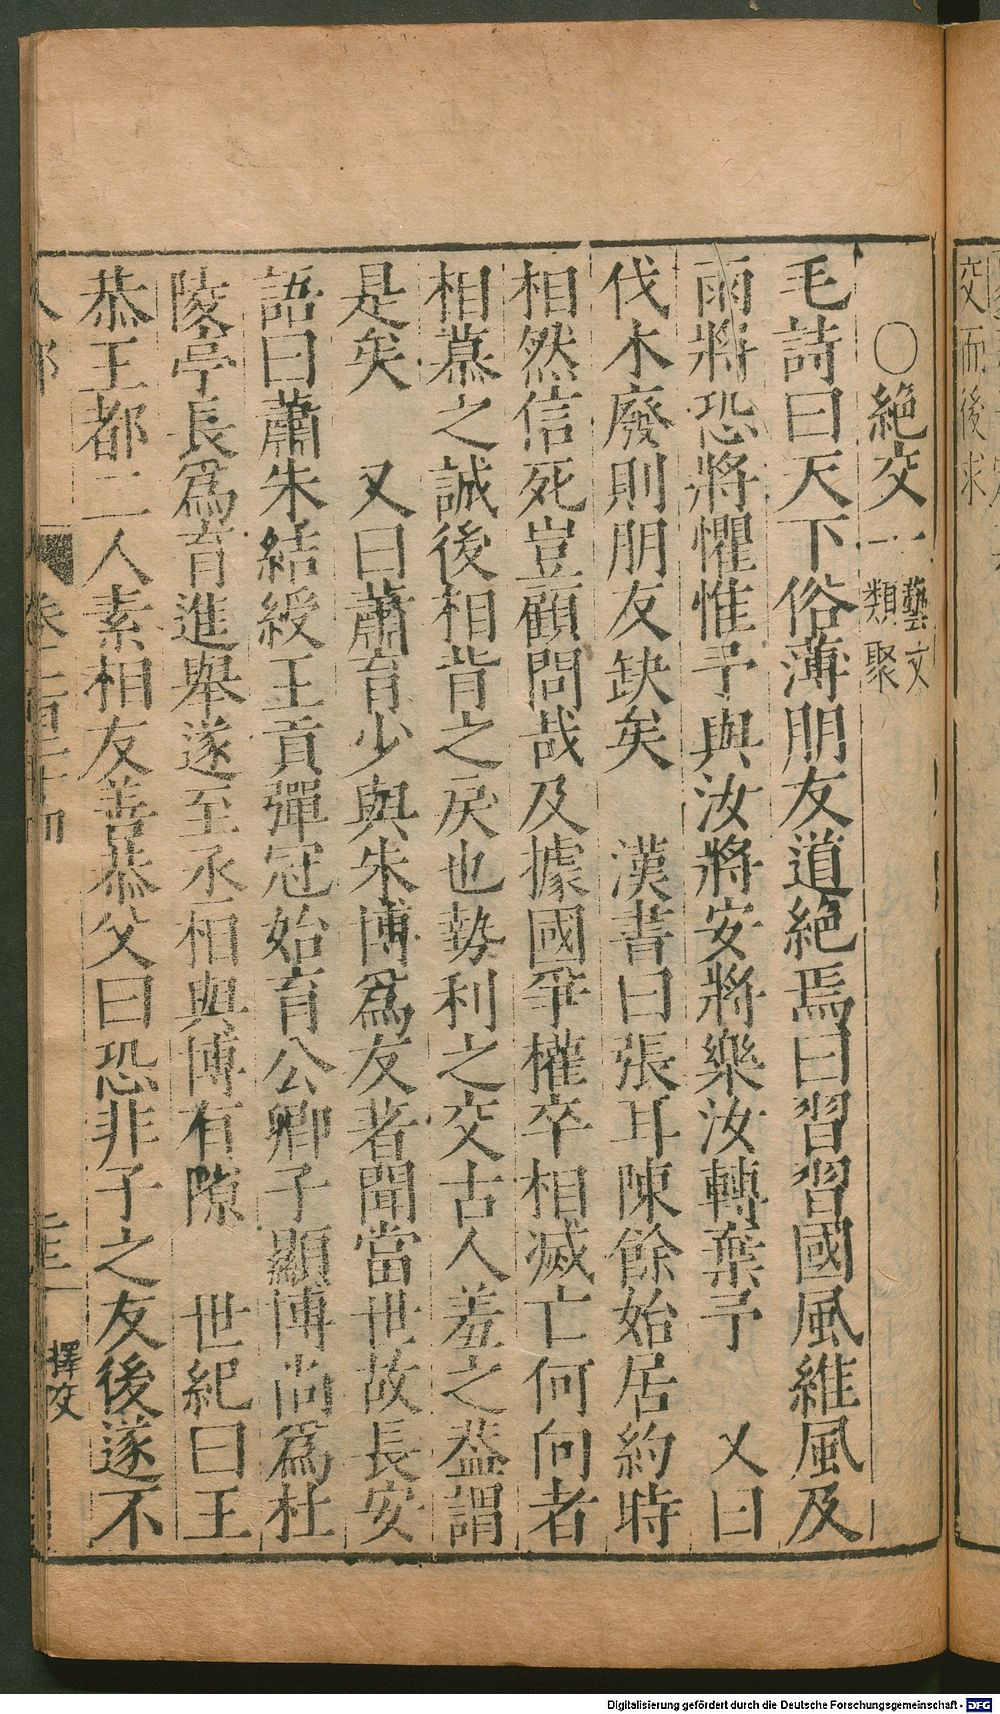 ○絶交一 藝文類聚
毛詩曰天下俗薄朋友道絶焉曰習習國風維風及
雨將恐將懼惟予與汝將安將樂汝轉棄予　又曰
伐木廢則朋友缺矣　漢書曰張耳陳餘始居約時
相然信死豈顧問哉及據國爭權卒相滅亡何向者
相慕之誠後相背之戾也勢利之交古人羞之葢謂
是矣　又曰蕭育少與朱博爲友著聞當世故長安
語曰蕭朱結綬王貢彈冠始育公卿子顯博尚爲杜
陵亭長爲育進舉遂至丞相與博有隙　世紀曰王
恭王都二人素相友善恭父曰恐非子之友後遂不
人部
擇交
交而後求
Digitalisierung gefördert durch die Deutsche Forschungsgemeinschaft - DFG